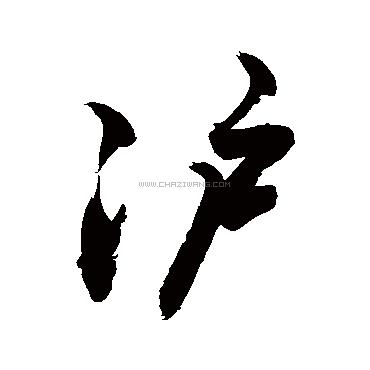 沪
WWW.CHAZIWANG.COM